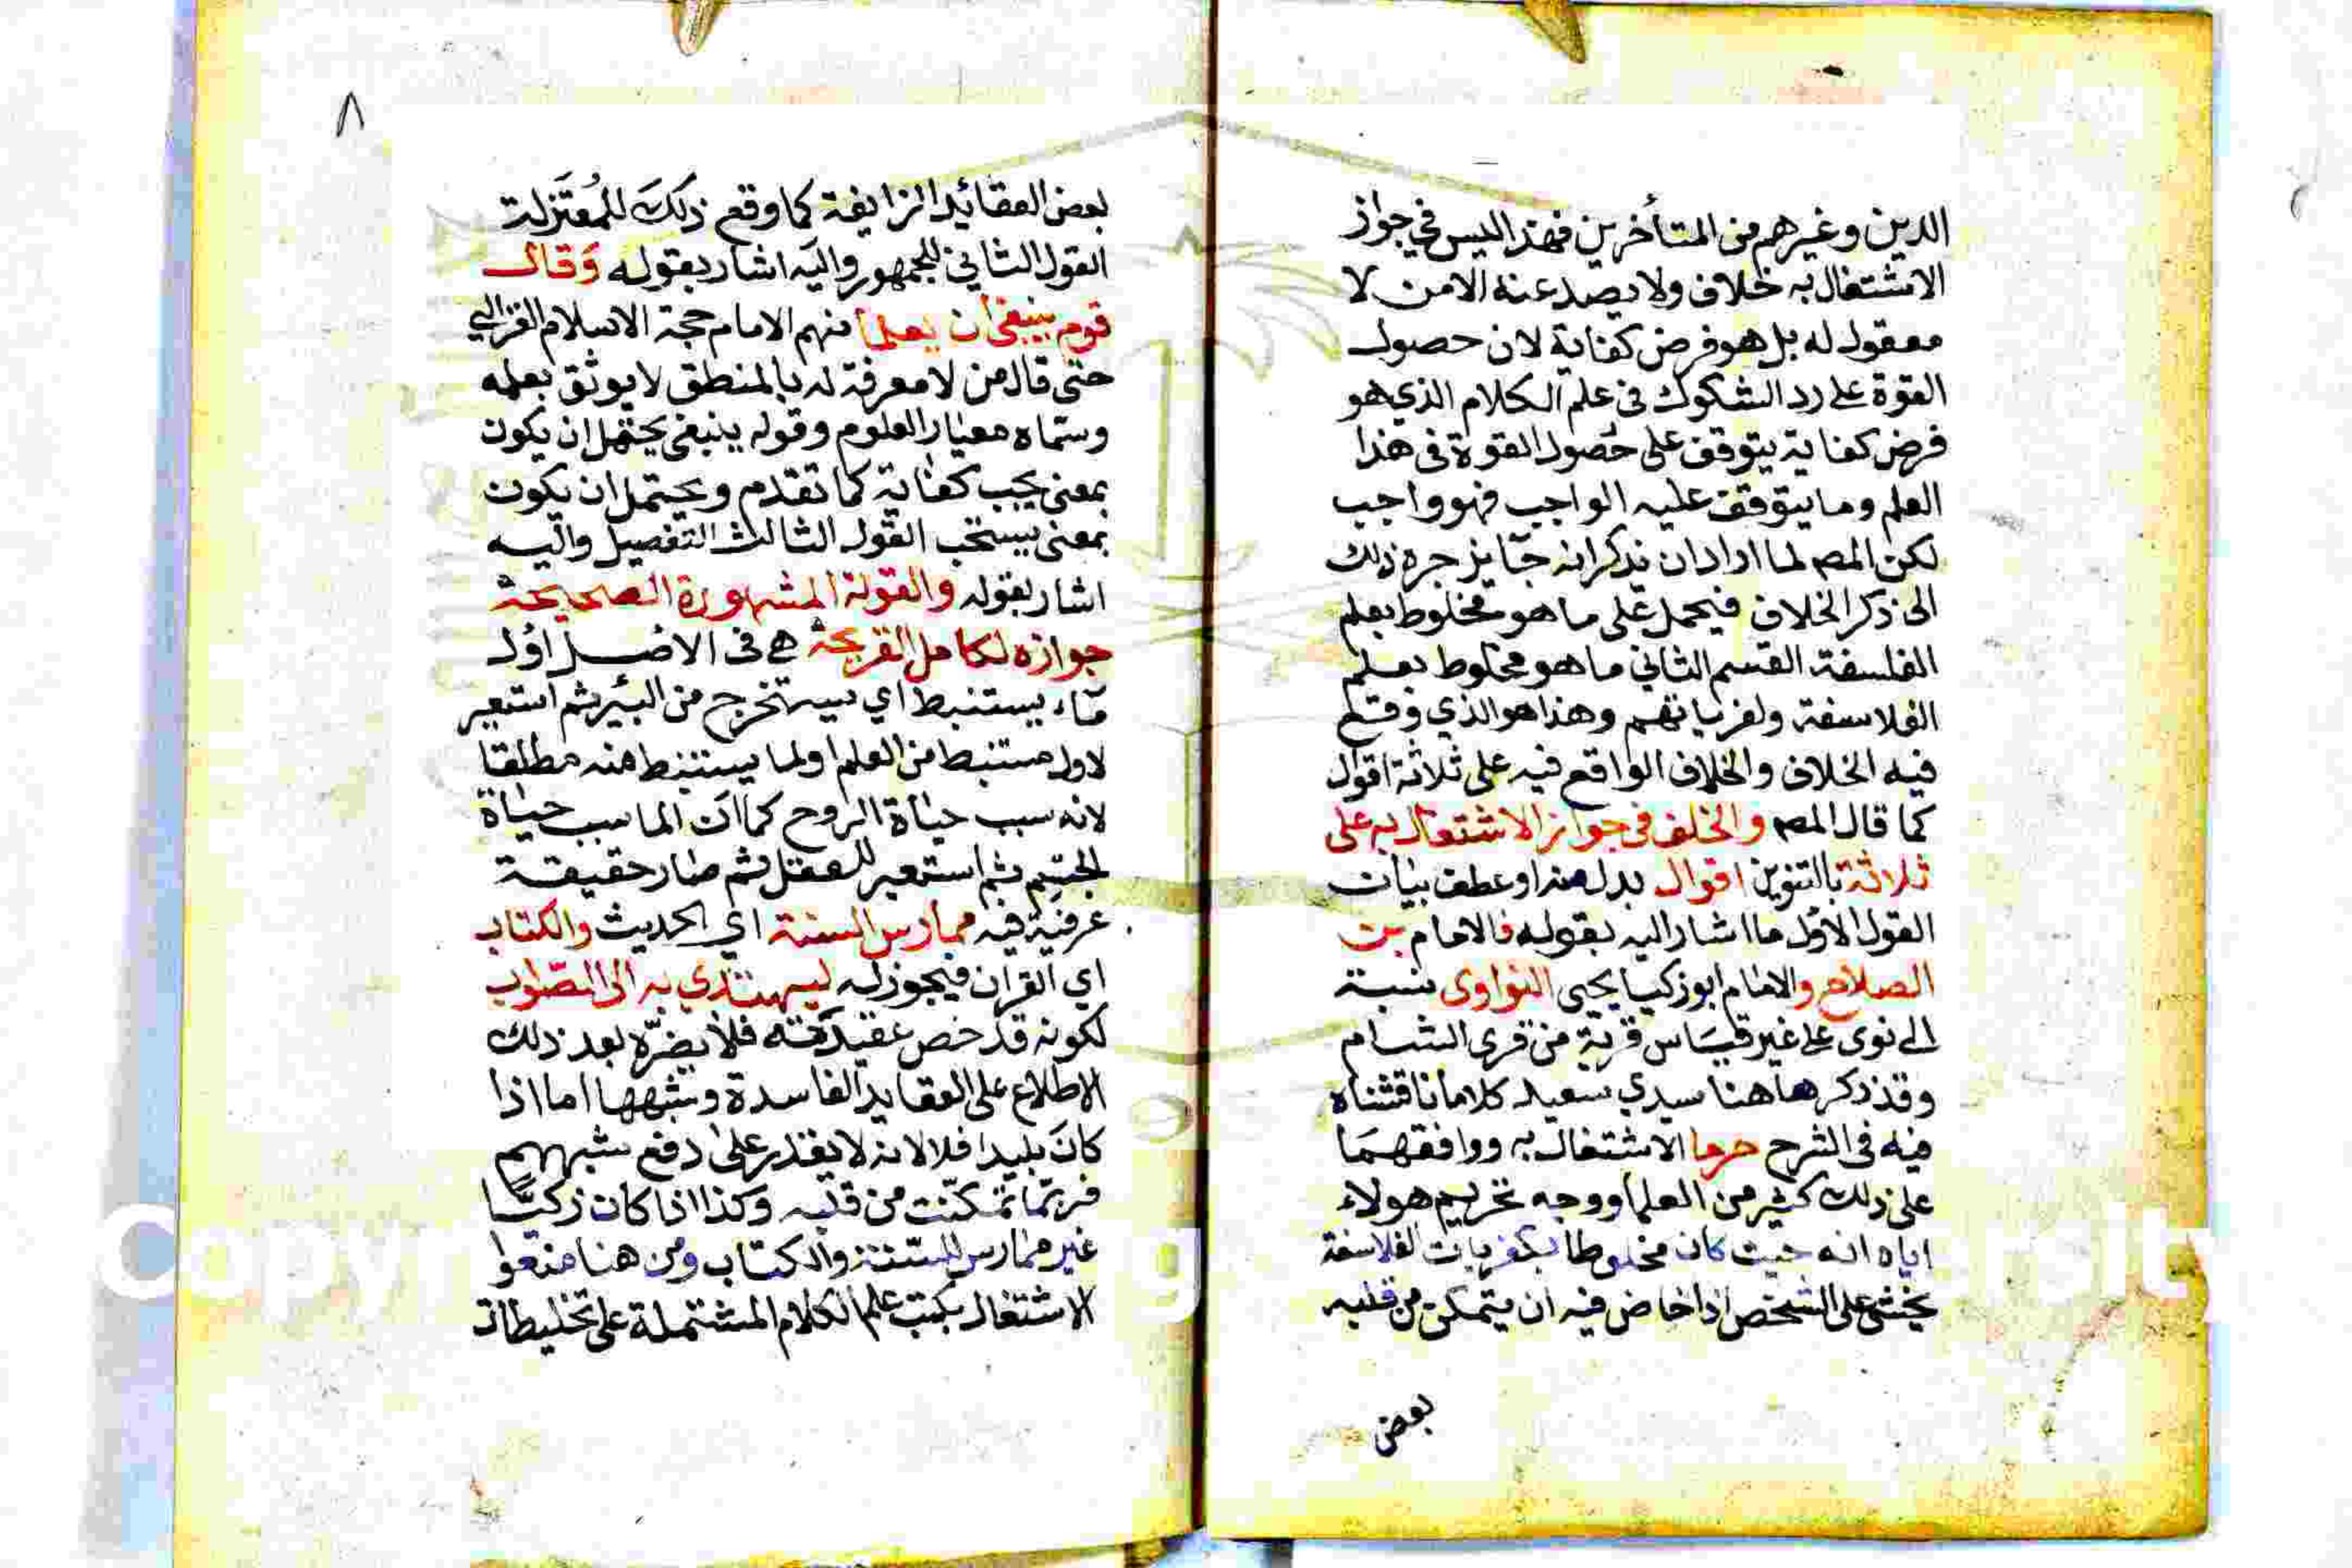 الدين وغيرهم من المتأخرين فهذا ليس في جواز
الاشتغال به خلاف ولا يصد عنه الا من لا
معقول له بل هو فرض كفاية لان حصول
القوة على رد الشكوك في علم الكلام الذي هو
فرض كفاية يتوقف على حصول القوة في هذا
العلم وما يتوقف عليه الواجب فهو واجب
لكن المصم لما اراد ان يذكر انه جايز جره ذلك
الى ذكر الخلاف فيحمل على ما هو مخلوط بعلم
الفلسفة القسم الثاني ما هو مخلوط بعلم
الفلاسفة وكفرياتهم وهذا هو الذي وقع
فيه الخلاف والخلاف الواقع فيه على ثلاثة اقوال
كما قال المصم والخلف في جواز الاشتغال به على
ثلاثة بالتنوين اقوال بدل منه او عطف بيان
القول الاول ما اشار اليه بقوله فالامام بن
الصلاح والامام ابو زكيا يحيى النواوى نسبة
الى نوى على غير قياس قرية من قرى الشام
وقد ذكر هاهنا سيدي سعيد كلاما ناقشناه
فيه في الشرح حرما الاشتغال به ووافقهما
على ذلك كثير من العلما ووجه تحريم هولاء
اياه انه حيث كان مخلوطا بكفريات الفلاسفة
يخشى على الشخص اذا خاض فيه ان يتمكن من قلبه
بعض
٨
بعض العقائد الزايغة كما وقع ذلك للمعتزلة
القول الثاني للجمهور واليه اشار بقوله وقال
قوم ينبغي ان يعلما منهم الامام حجة الاسلام الغزالي
حتى قال من لا معرفة له بالمنطق لا يوثق بعلمه
وسماه معيار العلوم وقوله ينبغي يحتمل ان يكون
بمعنى يجب كفاية كما تقدم ويحتمل ان يكون
بمعنى يستحب القول الثالث التفصيل واليه
اشار بقوله والقولة المشهورة الصحيحة
جوازه لكامل القريحة هي في الاصل اول
ماء يستنبط اي يستخرج من البئر ثم استعير
لاول مستنبط من العلم او لما يستنبط منه مطلقا
لانه سبب حياة الروح كما ان الما سبب حياة
الجسم ثم استعير للعقل ثم صار حقيقة
عرفية فيه ممارس السنة اي الحديث والكتاب
اي القران فيجوز له ليهتدي به الى الصواب
لكونه قد خص عقيدته فلا يضره بعد ذلك
الاطلاع على العقايد الفاسدة وشبهها اما اذا
كان بليدا فلا لانه لا يقدر على دفع شبههم
فربما تمكنت من قلبه وكذا اذا كان زكيا
غير ممارس للسنة والكتاب ومن هنا منعوا
الاشتغال بكتب علم الكلام المشتملة على تخليطات